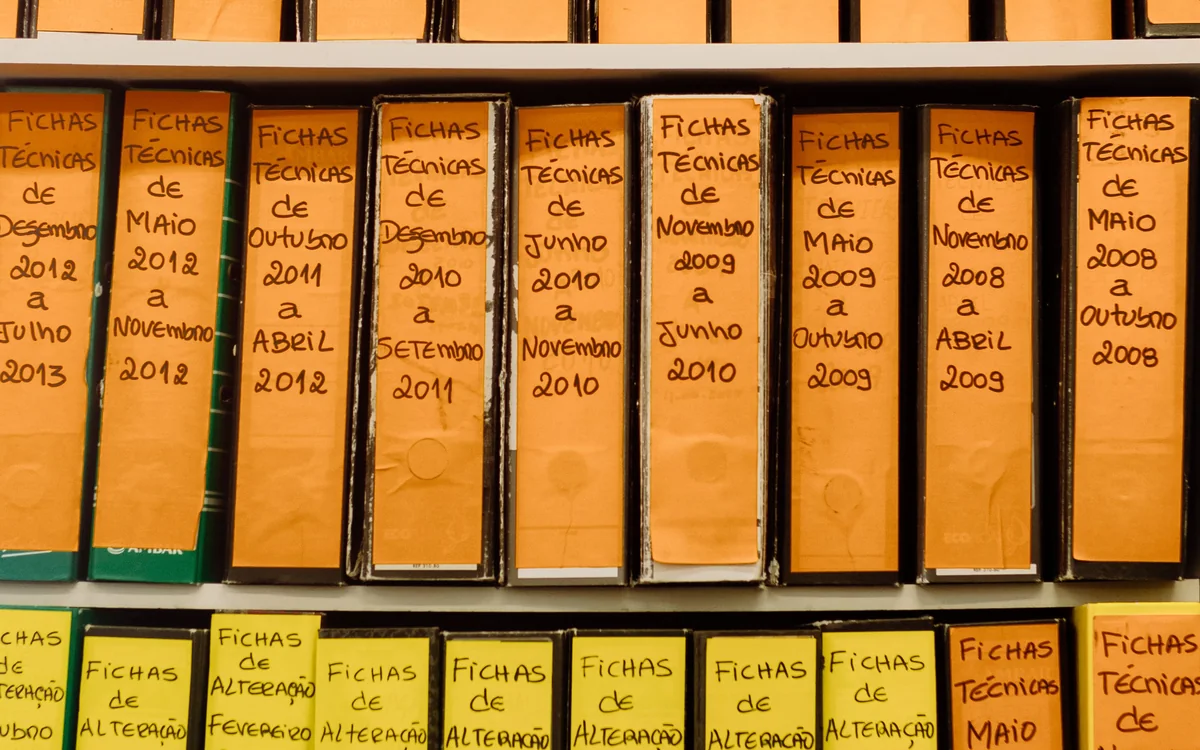 FiCHAS
TÉCNiCAS
de
Desembro
2012
a
Julho
2013
FiCHAS
TÉCNiCAS
de
MAio
2012
a
Novembro
2012
AMBAR
FiCHAS
TÉCNiCAS
de
Outubro
2011
a
ABRiL
2012
FiCHAS
TÉCNiCAS
de
Desembro
2010
a
SETEmbro
2011
FiCHAS
TÉCNiCAS
de
Junho
2010
a
Novembro
2010
FiCHAS
TÉCNiCAS
de
Novembro
2009
a
Junho
2010
FiCHAS
TÉCNiCAS
de
MAio
2009
a
Outubro
2009
FiCHAS
TÉCNiCAS
de
Novembro
2008
a
ABRiL
2009
FiCHAS
TÉCNiCAS
de
MAio
2008
a
Outubro
2008
FiCHAS
de
ALTERAÇÃO
FiCHAS
de
ALTERAÇÃO
Fevereiro
FiCHAS
de
ALTERAÇÃO
FiCHAS
de
ALTERAÇÃO
FiCHAS
de
ALTERAÇÃO
FiCHAS
de
ALTERAÇÃO
FiCHAS
de
ALTERAÇÃO
FiCHAS
TÉCNiCAS
MAIO
FiCHAS
TÉCNiCAS
de